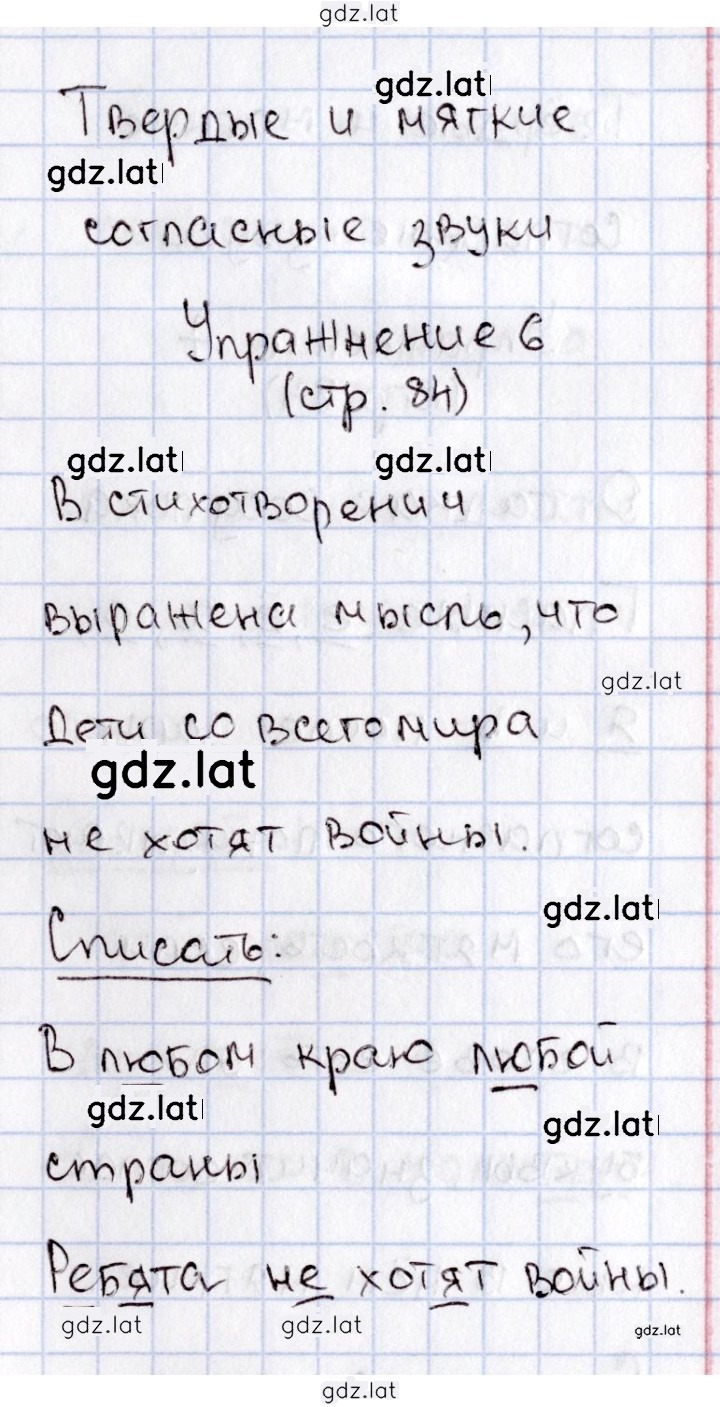 gdz.lat
gdz.lat
Твердые и мягкие
gdz.lat
согласные звуки
Упражнение 6
(стр. 84)
gdz.lat gdz.lat
В стихотворении
выражена мысль, что
gdz.lat
Дети со всего мира
gdz.lat
не хотят войны.
gdz.lat
Списать:
В любом краю любой
gdz.lat
gdz.lat
страны
Ребята не хотят войны.
gdz.lat gdz.lat gdz.lat
gdz.lat